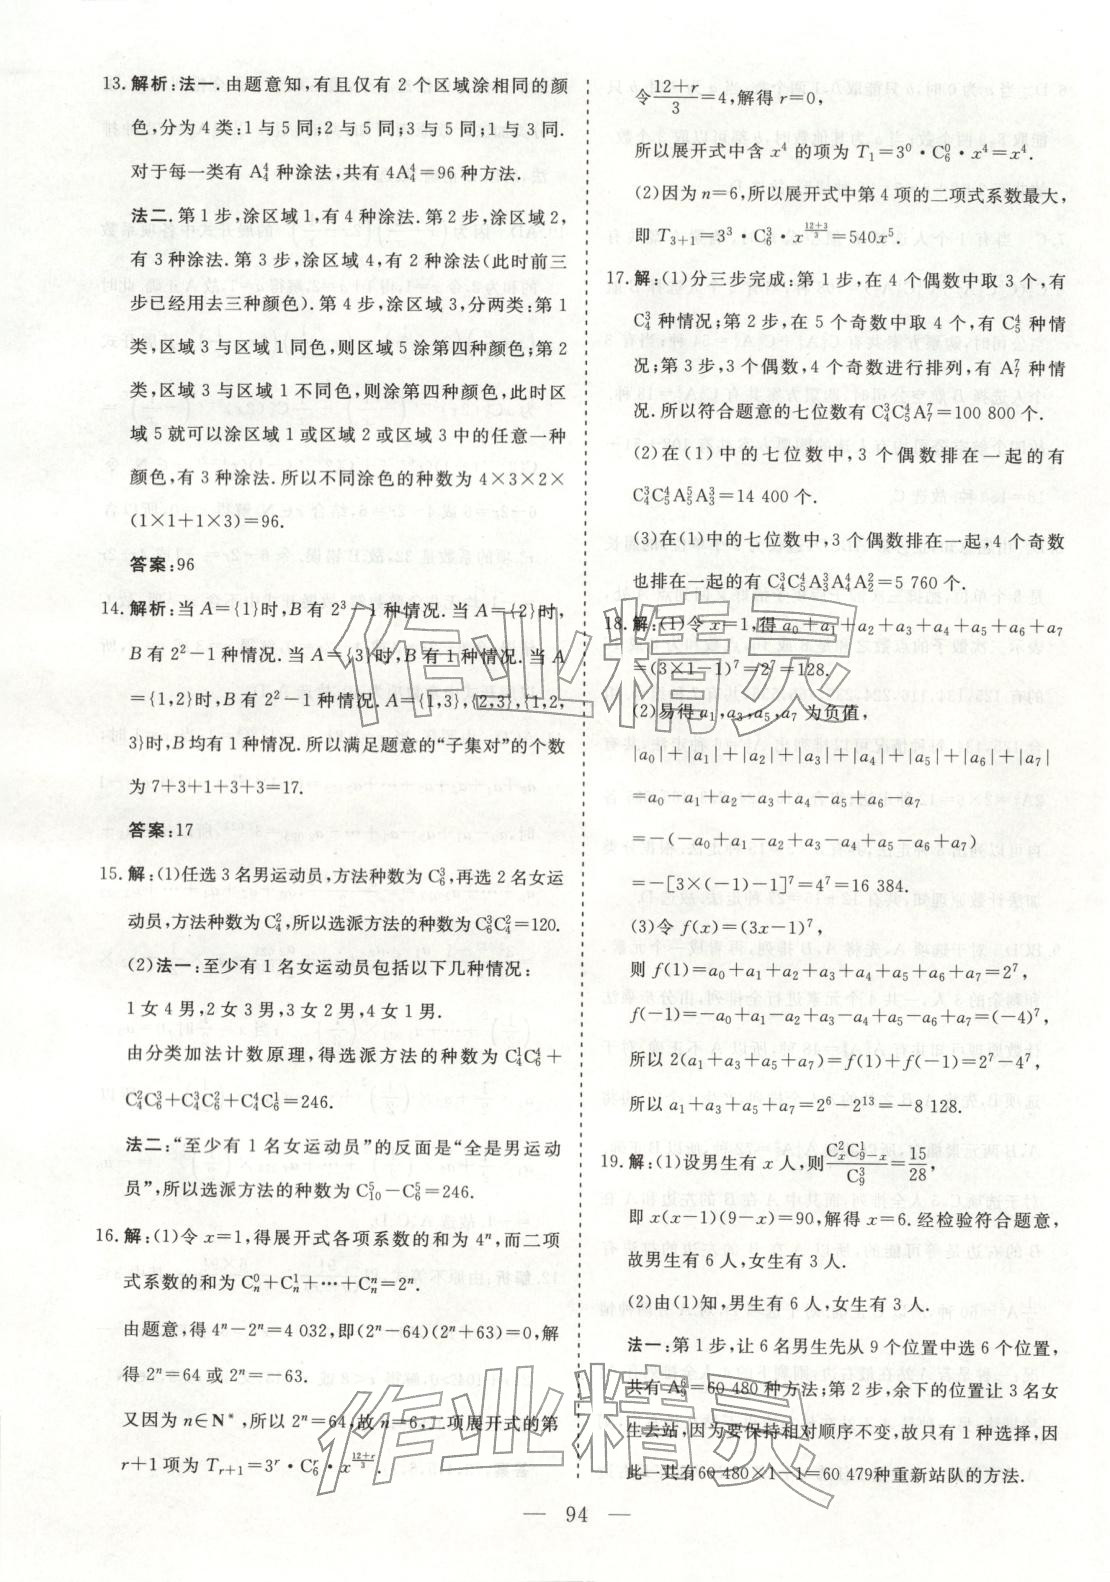 13. 解析:法一. 由题意知,有且仅有 2 个区域涂相同的颜
色,分为 4 类:1 与 5 同;2 与 5 同;3 与 5 同;1 与 3 同.
对于每一类有 A₄⁴ 种涂法,共有 4A₄⁴=96 种方法.
法二. 第 1 步,涂区域 1,有 4 种涂法. 第 2 步,涂区域 2,
有 3 种涂法. 第 3 步,涂区域 4,有 2 种涂法(此时前三
步已经用去三种颜色). 第 4 步,涂区域 3,分两类:第 1
类,区域 3 与区域 1 同色,则区域 5 涂第四种颜色;第 2
类,区域 3 与区域 1 不同色,则涂第四种颜色,此时区
域 5 就可以涂区域 1 或区域 2 或区域 3 中的任意一种
颜色,有 3 种涂法. 所以不同涂色的种数为 4×3×2×
(1×1+1×3)=96.
答案:96
14. 解析:当 A={1}时,B 有 2³-1 种情况. 当 A={2}时,
B 有 2²-1 种情况. 当 A={3}时,B 有 1 种情况. 当
A={1,2}时,B 有 2²-1 种情况. A={1,3},{2,3},{1,2,
3}时,B 均有 1 种情况. 所以满足题意的“子集对”的个数
为 7+3+1+3+3=17.
答案:17
15. 解:(1)任选 3 名男运动员,方法种数为 C₆³,再选 2 名女运
动员,方法种数为 C₄²,所以选派方法的种数为 C₆³C₄²=120.
(2)法一:至少有 1 名女运动员包括以下几种情况:
1 女 4 男,2 女 3 男,3 女 2 男,4 女 1 男.
由分类加法计数原理,得选派方法的种数为 C₄¹C₆⁴+
C₄²C₆³+C₄³C₆²+C₄⁴C₆¹=246.
法二:“至少有 1 名女运动员”的反面是“全是男运动
员”,所以选派方法的种数为 C₁₀⁵-C₆⁵=246.
16. 解:(1)令 x=1,得展开式各项系数的和为 4ⁿ,而二项
式系数的和为 Cₙ⁰+Cₙ¹+⋯+Cₙⁿ=2ⁿ.
由题意,得 4ⁿ-2ⁿ=4 032,即(2ⁿ-64)(2ⁿ+63)=0,解
得 2ⁿ=64 或 2ⁿ=-63.
又因为 n∈N*,所以 2ⁿ=64,故 n=6,二项展开式的第
r+1 项为 Tᵣ₊₁=3ʳ·C₆ʳ·x^((12+r)/3).
令(12+r)/3=4,解得 r=0,
所以展开式中含 x⁴ 的项为 T₁=3⁰·C₆⁰·x⁴=x⁴.
(2)因为 n=6,所以展开式中第 4 项的二项式系数最大,
即 T₃₊₁=3³·C₆³·x^((12+3)/3)=540x⁵.
17. 解:(1)分三步完成:第 1 步,在 4 个偶数中取 3 个,有
C₄³ 种情况;第 2 步,在 5 个奇数中取 4 个,有 C₅⁴ 种情
况;第 3 步,3 个偶数,4 个奇数进行排列,有 A₇⁷ 种情
况. 所以符合题意的七位数有 C₄³C₅⁴A₇⁷=100 800 个.
(2)在(1)中的七位数中,3 个偶数排在一起的有
C₄³C₅⁴A₅⁵A₃³=14 400 个.
(3)在(1)中的七位数中,3 个偶数排在一起,4 个奇数
也排在一起的有 C₄³C₅⁴A₃³A₄⁴A₂²=5 760 个.
18. 解:(1)令 x=1,得 a₀+a₁+a₂+a₃+a₄+a₅+a₆+a₇
=(3×1-1)⁷=2⁷=128.
(2)易得 a₁,a₃,a₅,a₇ 为负值,
|a₀|+|a₁|+|a₂|+|a₃|+|a₄|+|a₅|+|a₆|+|a₇|
=a₀-a₁+a₂-a₃+a₄-a₅+a₆-a₇
=-(-a₀+a₁-a₂+a₃-a₄+a₅-a₆+a₇)
=-[3×(-1)-1]⁷=4⁷=16 384.
(3)令 f(x)=(3x-1)⁷,
则 f(1)=a₀+a₁+a₂+a₃+a₄+a₅+a₆+a₇=2⁷,
f(-1)=-a₀+a₁-a₂+a₃-a₄+a₅-a₆+a₇=(-4)⁷,
所以 2(a₁+a₃+a₅+a₇)=f(1)+f(-1)=2⁷-4⁷,
所以 a₁+a₃+a₅+a₇=2⁶-2¹³=-8 128.
19. 解:(1)设男生有 x 人,则(Cₓ²C₉₋ₓ¹)/C₉³=15/28,
即 x(x-1)(9-x)=90,解得 x=6. 经检验符合题意,
故男生有 6 人,女生有 3 人.
(2)由(1)知,男生有 6 人,女生有 3 人.
法一:第 1 步,让 6 名男生先从 9 个位置中选 6 个位置,
共有 A₉⁶=60 480 种方法;第 2 步,余下的位置让 3 名女
生去站,因为要保持相对顺序不变,故只有 1 种选择,因
此一共有60 480×1-1=60 479种重新站队的方法.
作业精灵
作业精灵
— 94 —